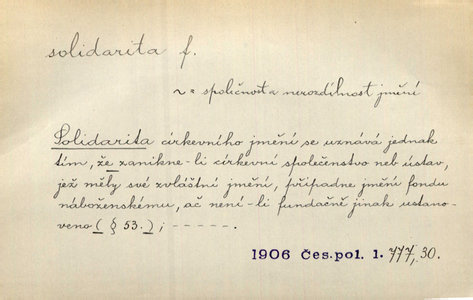 solidarita f.
~ = společnost a nerozdílnost jmění
Solidarita církevního jmění se uznává jednak
tím, že zanikne-li církevní společenstvo neb ústav,
jež měly své zvláštní jmění, případne jmění fondu
náboženskému, ač není-li fundačně jinak ustano-
veno ( § 53. ) ; - - - - - .
1906 Čes. pol. 1. 777, 30.